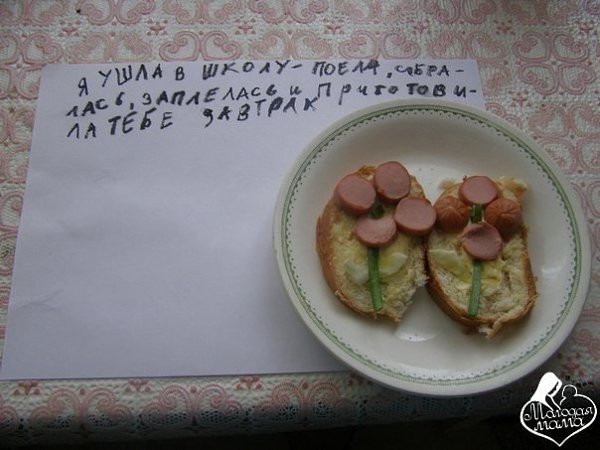 Я УШЛА В ШКОЛУ - ПОЕЛА, СОБРА-
ЛАСЬ, ЗАПЛЕЛАСЬ И ПРИГОТОВИ-
ЛА ТЕБЕ ЗАВТРАК
Молодая
мама